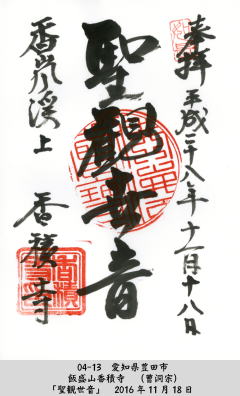 奉拝 平成二十八年十一月十八日
聖観世音
香嵐渓上 香積寺
04-13 愛知県豊田市
飯盛山香積寺 (曹洞宗)
「聖観世音」 2016年11月18日